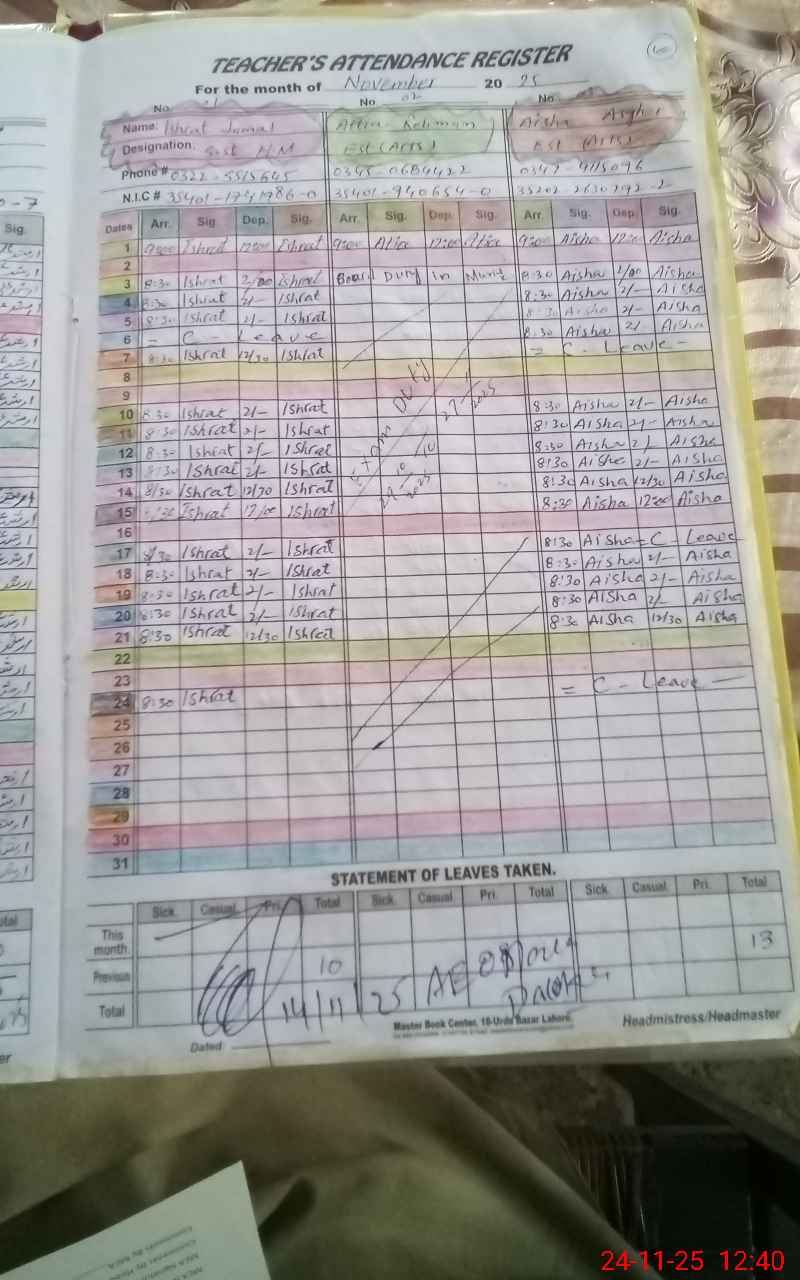 TEACHER'S ATTENDANCE REGISTER
For the month of November 20 25
No. 1 No 02 No.
Name: Ishrat Jamal Attia Rehman Aisha
Designation: H/M Est (Arts) Est (Arts)
Phone # 0322-5515645 0345-0684422 0347-4115096
N.I.C # 35401-1741786-0 35401-940654-0 35202-2630792-2
Dates Arr. Sig Dep. Sig. Arr. Sig. Dep. Sig. Arr. Sig. Dep. Sig.
1 9:00 Ishrat 12:00 Ishrat 9:00 Attia 12:00 Attia 9:00 Aisha 12:00 Aisha
2
3 8:30 Ishrat 2/00 Ishrat Board Duty in 8:30 Aisha 1/00 Aisha
4 8:30 Ishrat 2/- Ishrat 8:30 Aisha 2/- Aisha
5 8:30 Ishrat 2/- Ishrat 8:30 Aisha 2/- Aisha
6 = C - Leave 8:30 Aisha 2/- Aisha
7 8:30 Ishrat 12/30 Ishrat = C. Leave -
8
9
10 8:30 Ishrat 2/- Ishrat 8:30 Aisha 2/- Aisha
11 8:30 Ishrat 2/- Ishrat 8:30 Aisha 2/- Aisha
12 8:30 Ishrat 2/- Ishrat 8:30 Aisha 2/- Aisha
13 8:30 Ishrat 2/- Ishrat 8:30 Aisha 2/- Aisha
14 8/30 Ishrat 12/30 Ishrat 8:30 Aisha 12/30 Aisha
15 Ishrat 12/00 Ishrat 8:30 Aisha 12:00 Aisha
Exam Duty
29/10/2025 27/ 2025
16
17 8/30 Ishrat 2/- Ishrat 8:30 Aisha = C - Leave
18 8:30 Ishrat 2/- Ishrat 8:30 Aisha 2/- Aisha
19 8:30 Ishrat 2/- Ishrat 8:30 Aisha 2/- Aisha
20 8:30 Ishrat 2/- Ishrat 8:30 Aisha 2/- Aisha
21 8:30 Ishrat 12/30 Ishrat 8:30 Aisha 12/30 Aisha
22
23
24 8:30 Ishrat = C - Leave -
25
26
27
28
29
30
31
STATEMENT OF LEAVES TAKEN.
Sick. Casual Pri. Total Sick. Casual Pri. Total Sick. Casual Pri. Total
This month. 13
Previous 10
Total 14/11/25
Master Book Center, 10-Urdu Bazar Lahore.
Dated Headmistress/Headmaster
24-11-25 12:40